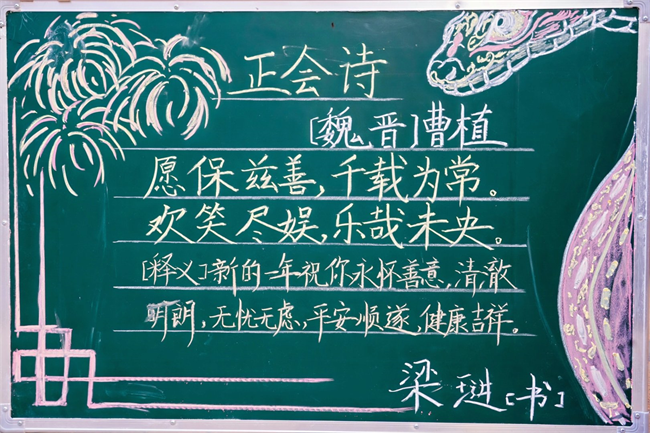 正会诗
[魏晋]曹植
愿保兹善,千载为常。
欢笑尽娱,乐哉未央。
[释义]新的一年祝你永怀善意,清澈
明朗,无忧无虑,平安顺遂,健康吉祥。
梁琎[书]